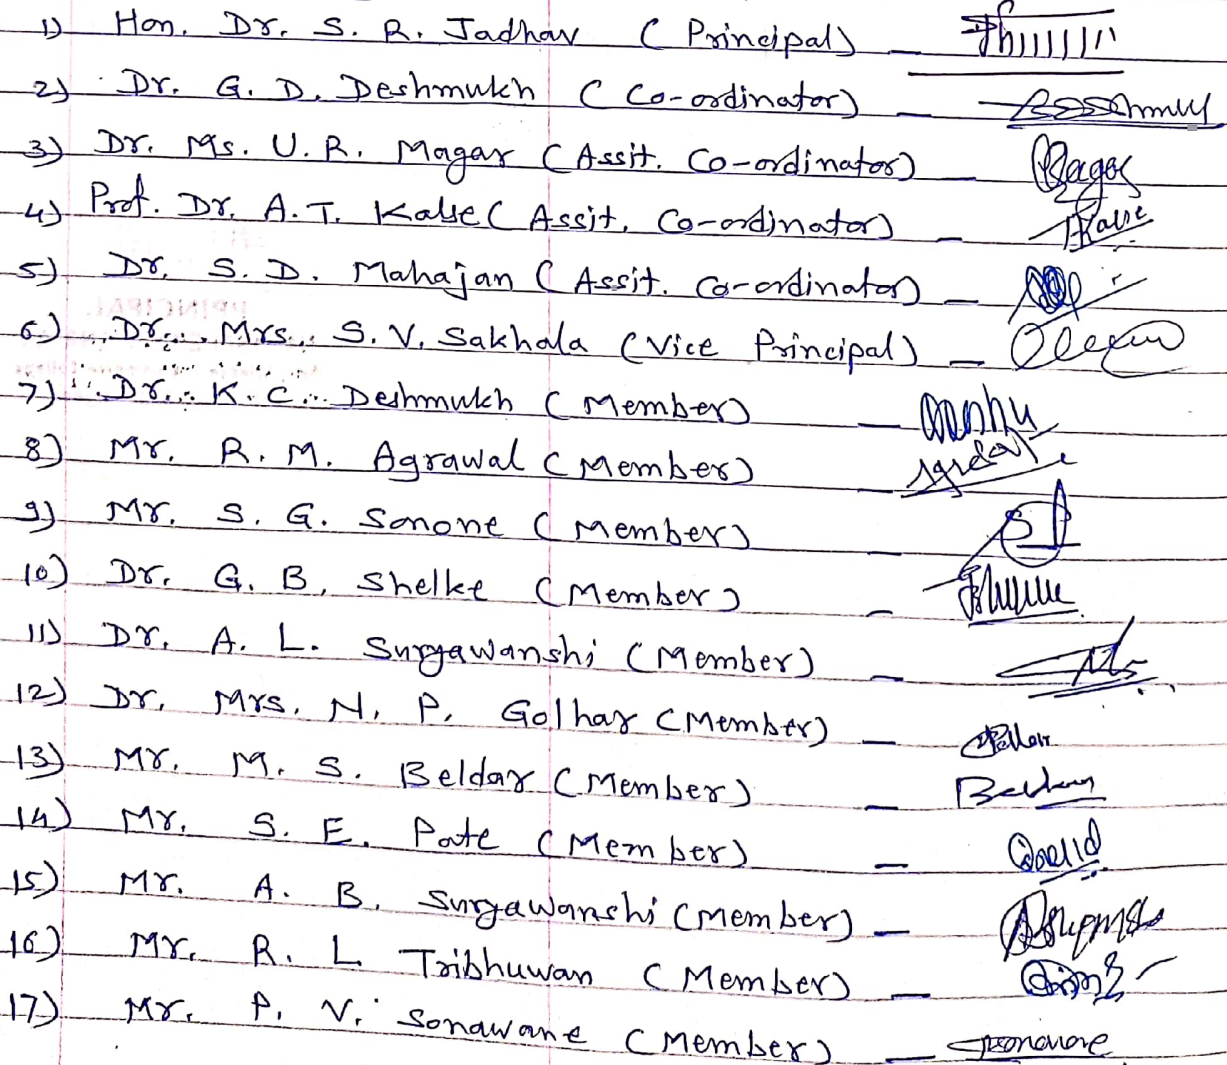 1) Hon. Dr. S. R. Jadhav (Principal) —
2) Dr. G. D. Deshmukh (Co-ordinator) —
3) Dr. Ms. U. R. Magar (Assit. Co-ordinator) —
4) Prof. Dr. A. T. Kalse (Assit. Co-ordinator) — Kalse
5) Dr. S. D. Mahajan (Assit. Co-ordinator) —
6) Dr. Mrs. S. V. Sakhala (Vice Principal) —
7) Dr. K. C. Deshmukh (Member) —
8) Mr. R. M. Agrawal (Member) —
9) Mr. S. G. Sonone (Member) —
10) Dr. G. B. Shelke (Member) —
11) Dr. A. L. Suryawanshi (Member) —
12) Dr. Mrs. N. P. Golhar (Member) —
13) Mr. M. S. Beldar (Member) — Beldar
14) Mr. S. E. Pate (Member) —
15) Mr. A. B. Suryawanshi (Member) —
16) Mr. R. L. Tribhuwan (Member) —
17) Mr. P. V. Sonawane (Member) —